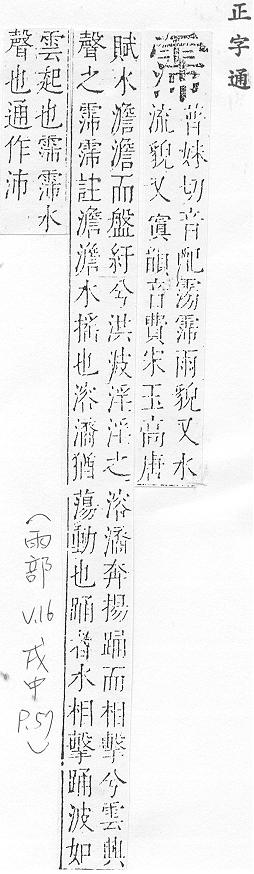 正字通
霈
普妹切音配霶霈雨貌又水
流貌又寘韻音費宋玉高唐
賦水澹澹而盤紆兮洪波淫淫之溶㵝奔揚踊而相擊兮雲興
聲之霈霈註澹澹水搖也溶㵝猶蕩動也踊者水相擊踊波如
雲起也霈霈水
聲也通作沛
(雨部 V.16 戌中 P.57)